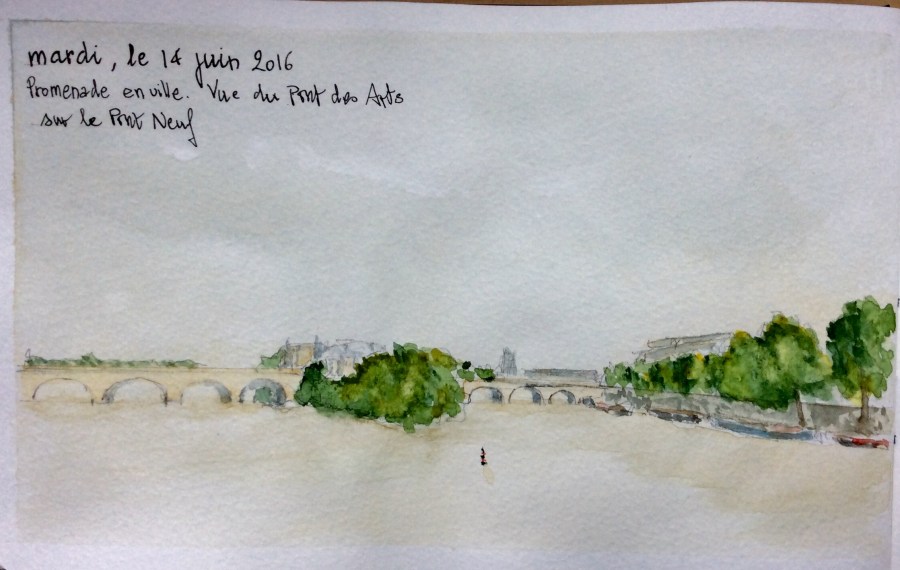 mardi, le 14 juin 2016
Promenade en ville. Vue du Pont des Arts
sur le Pont Neuf